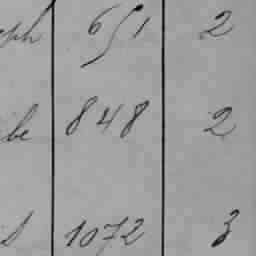 ph 651 2
be 848 2
s 1072 3